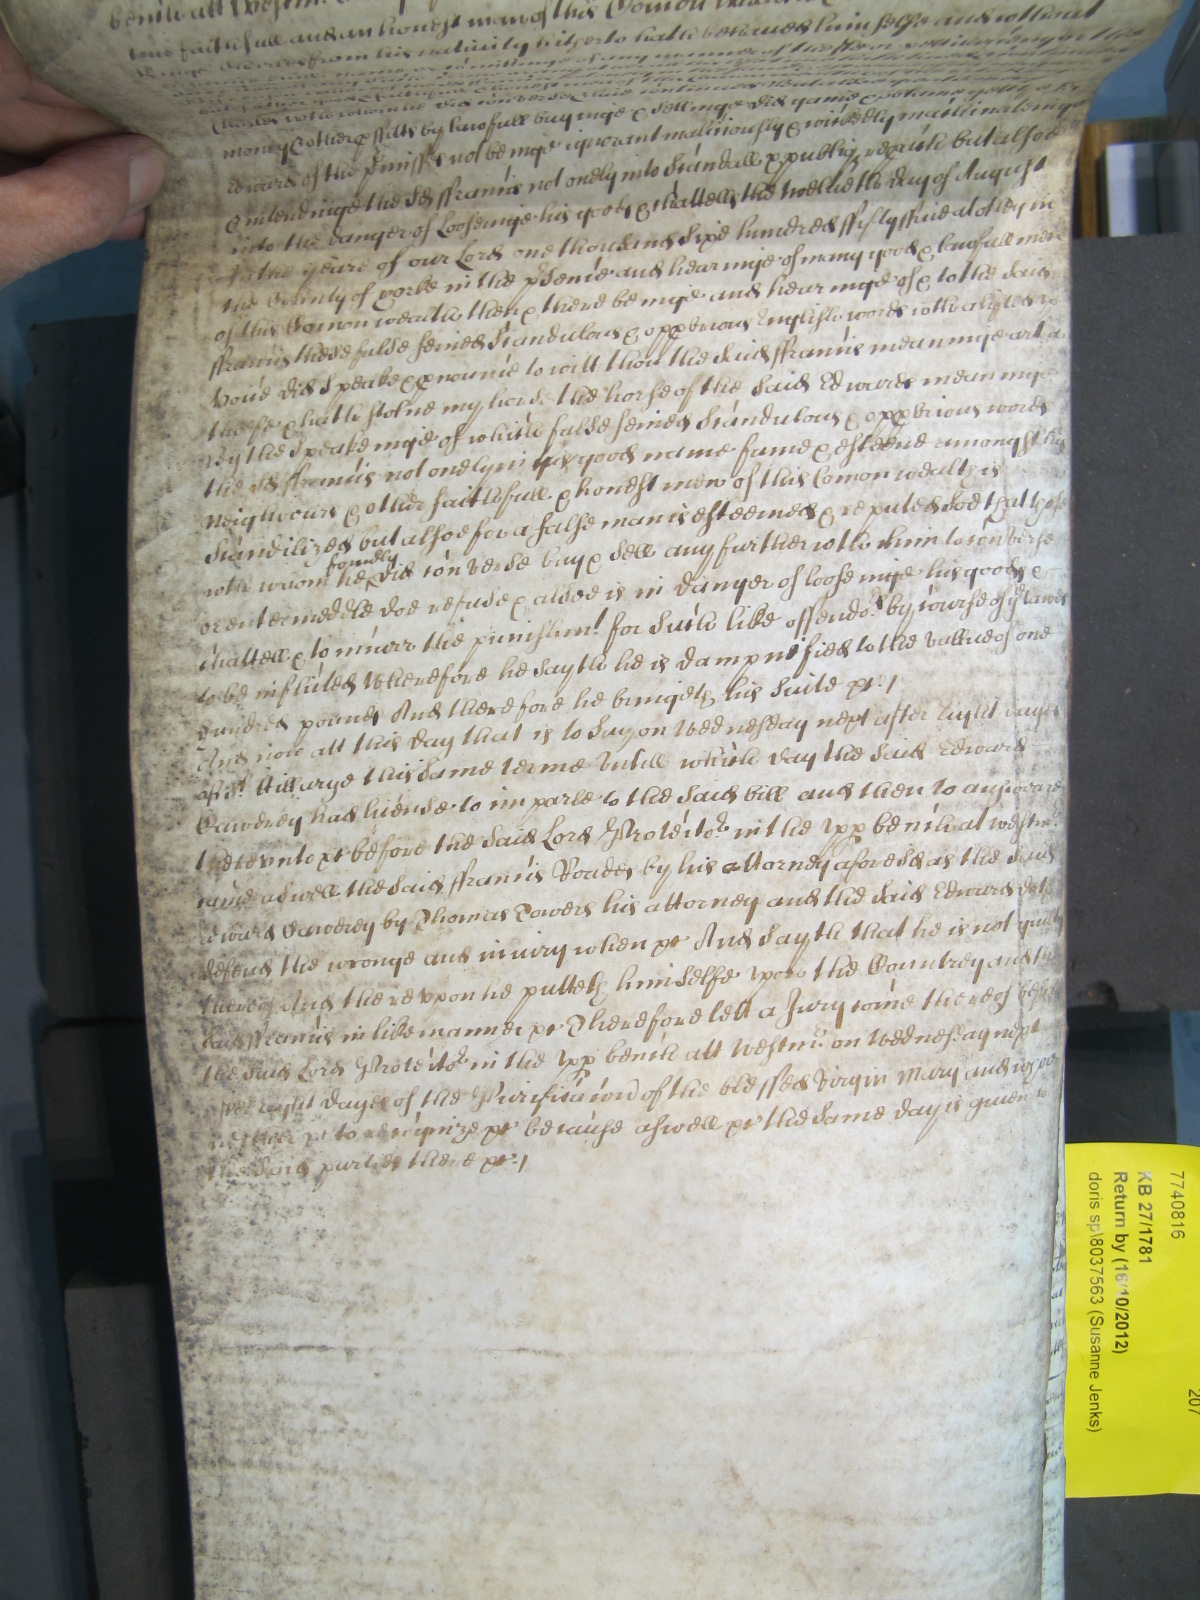 bench att Westm.
true faithfull and an honest man of this Comon wealth
from his nativity hitherto hath behaved him selfe and without
money & othere gifts by lawfull buyinge & sellinge did gaine
Edward of the p'misses not beinge ignorant malitiously & wickedly machinateinge
& intendinge the sd ffrancis not onely into scandall & publiq reproch but alsoe
into the danger of looseinge his goods & chattells the twelueth day of August
In the yeare of our Lord one thousand sixe hundred ffifty ffiue at otley in
the County of yorke in the p'sence and hearinge of many good & lawfull men
of this Comon wealth then & there beinge and hearinge of & to the said
ffrancis these false feined scandulous & opprrious English words with a high
voice did speake & pronounce to witt thou the said ffrancis meaninge art a
theefe & hath stolne my horse the horse of the said Edward meaninge
By the speakeinge of which false feined scandulous & opprrious words
the sd ffrancis not onely in his good name fame & esteeme amongst his
neighbours & other faithfull & honest men of this Comon wealth is
scandilized but alsoe for a false man is esteemed & reputed soe that those
with whom he formerly did converse buy & sell any further with him to converse
or entermeddle doe refuse & alsoe is in danger of looseinge his goods &
chattells & to incurr the punishmt for such like offendors by course of ye lawes
to be inflicted Wherefore he sayth he is dampnified to the vallue of one
hundred pounds And therefore he bringeth his suite &c:/
And now att this day that is to say on Wednesday next after Eight dayes
of St. Hillarye this same terme Untill which day the said Edward
Cawdrey had license to imparle to the said bill and then to answeare
thereunto &c before the said Lord Protector in the upp bench at westmr
came aswell the said ffrancis Roades by his attorney aforesd as the said
Edward Cawdrey by Thomas Towers his attorney and the said Edward doth
defend the wronge and iniury when &c And sayth that he is not guilty
thereof And thereupon he putteth himselfe upon the Countrey and the
said ffrancis in like manner &c Therefore lett a Jury come thereof before
the said Lord Protector in the upp bench att Westmr on Wednesday next
after eight dayes of the Purification of the blessed Virgin Mary and who
neither &c to recognize &c because aswell &c the same day is given to
the said parties there &c:/
7740816
KB 27/1781
Return by (16/10/2012)
doris sp\8037563 (Susanne Jenks)
207